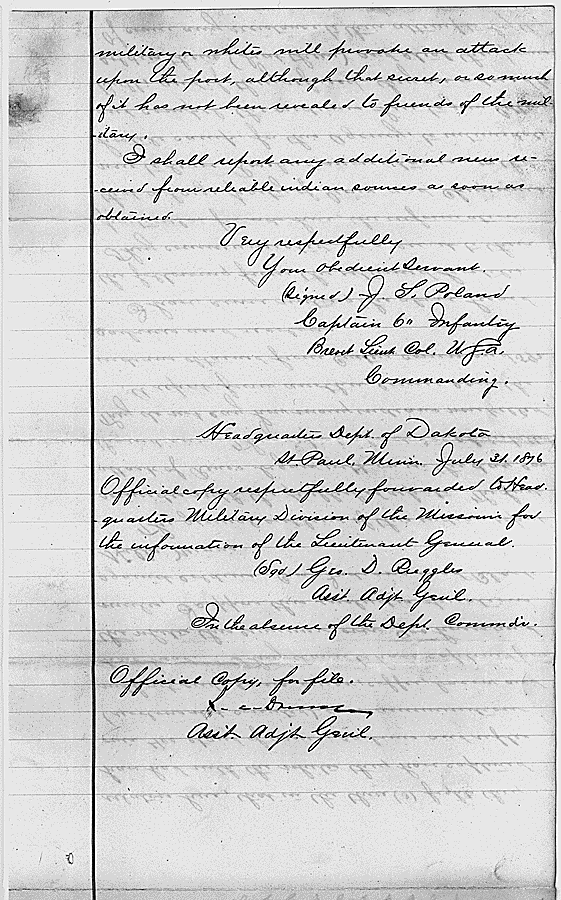 military or whites will provoke an attack
upon the post, although that secret, or so much
of it has not been revealed to friends of the mil-
-itary.
I shall report any additional news re-
-ceived from reliable indian sources as soon as
obtained.
Very respectfully
Your obedient servant.
(signed) J. S. Poland
Captain 6" Infantry
Brevt Lieut Col. U.S.A.
Commanding.
Headquarters Dept. of Dakota
St. Paul, Minn. July 31. 1876
Official copy respectfully forwarded to Head-
-quarters Military Division of the Missouri for
the information of the Lieutenant General.
(Sgd) Geo. D. Ruggles
Asst. Adjt. Genl.
In the absence of the Dept. Commdr.
Official Copy, for file.
Asst. Adjt. Genl.